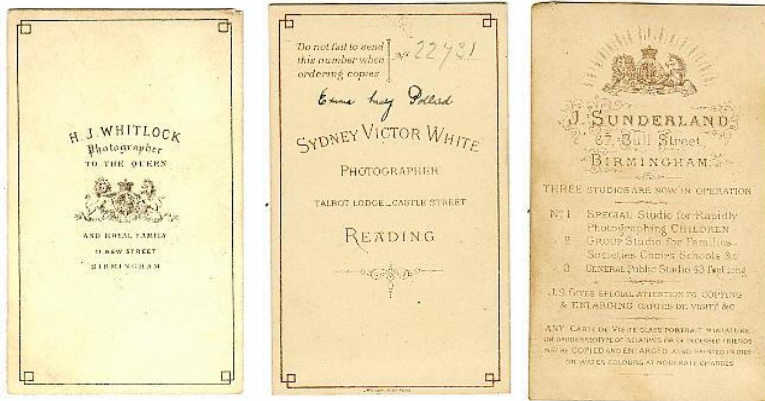 H. J. WHITLOCK
Photographer
TO THE QUEEN
AND ROYAL FAMILY
11 NEW STREET
BIRMINGHAM
Do not fail to send
this number when
ordering copies
No 22731
SYDNEY VICTOR WHITE
PHOTOGRAPHER
TALBOT LODGE_CASTLE STREET
READING
J. SUNDERLAND
67, Bull Street,
BIRMINGHAM.
THREE STUDIOS ARE NOW IN OPERATION
No 1 SPECIAL Studio for Rapidly
Photographing CHILDREN
2 GROUP Studio for Families
Societies Choirs Schools &c
3 GENERAL Public Studio 43 Feet Long
J.S. GIVES SPECIAL ATTENTION TO COPYING
& ENLARGING CARTES DE VISITE &C
ANY CARTE DE VISITE GLASS PORTRAIT MINIATURE
OR DAGUERREOTYPE OF RELATIVES OR OF DECEASED FRIENDS
MAY BE COPIED AND ENLARGED ALSO PAINTED IN OILS
OR WATER COLOURS AT MODERATE CHARGES